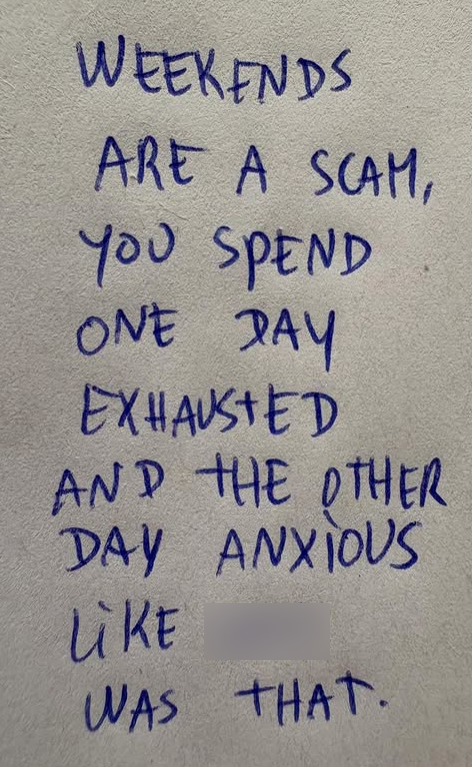 WEEKENDS
ARE A SCAM,
YOU SPEND
ONE DAY
EXHAUSTED
AND THE OTHER
DAY ANXIOUS
LIKE
WAS THAT.